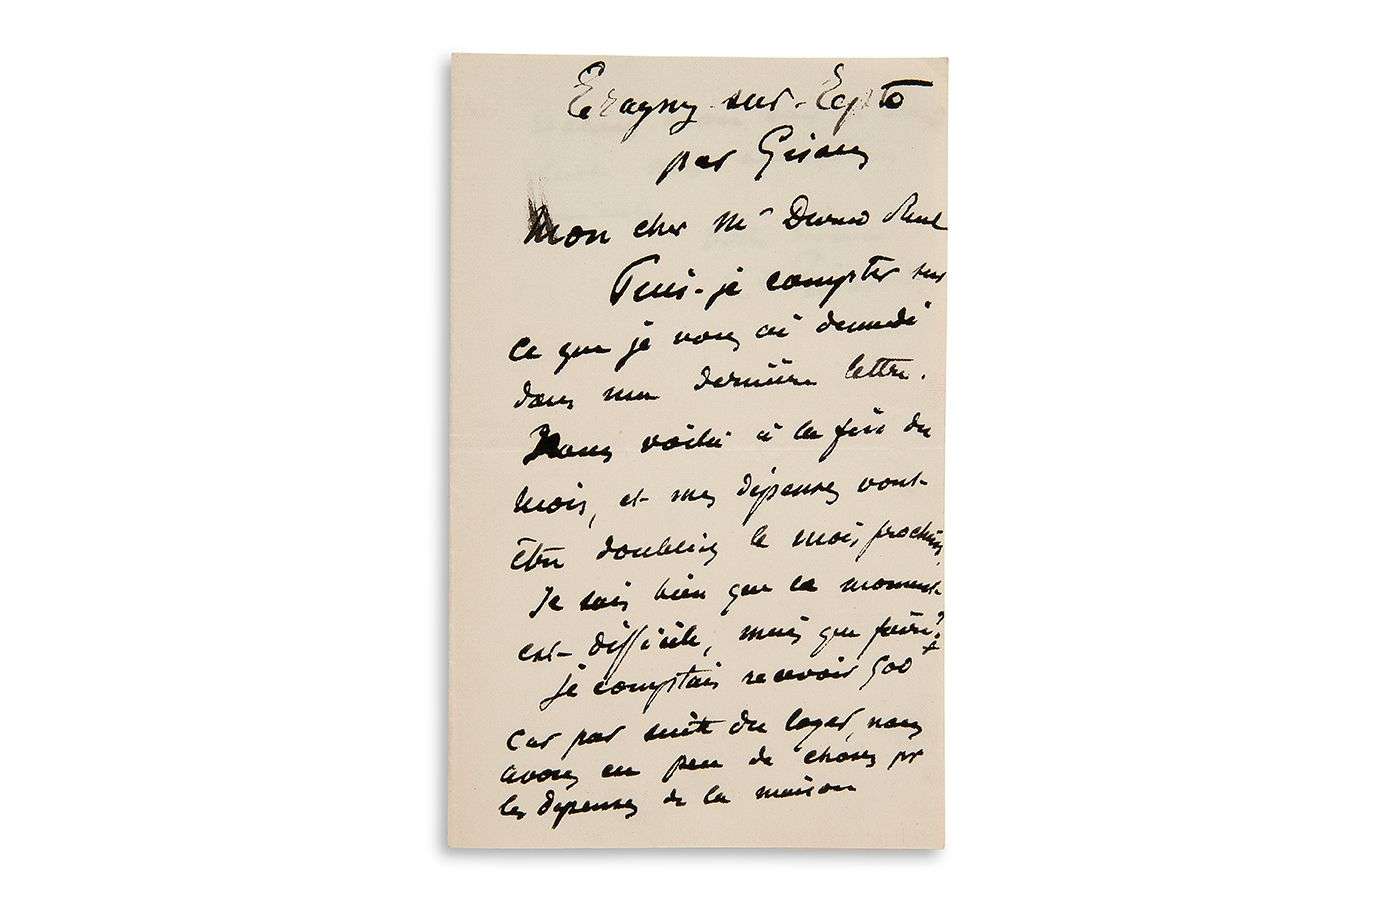 Eragny-sur-Epte
par Gisors
Mon cher Mr Durand Ruel
Puis-je compter sur
ce que je vous ai demandé
dans ma dernière lettre.
Nous voilà à la fin du
mois, et mes dépenses vont
être doublées le mois prochain,
Je sais bien que le moment
est difficile, mais que faire?
je comptais recevoir 500 f
Car par suite du loyer, nous
avons eu peu de choses pr
les dépenses de la maison